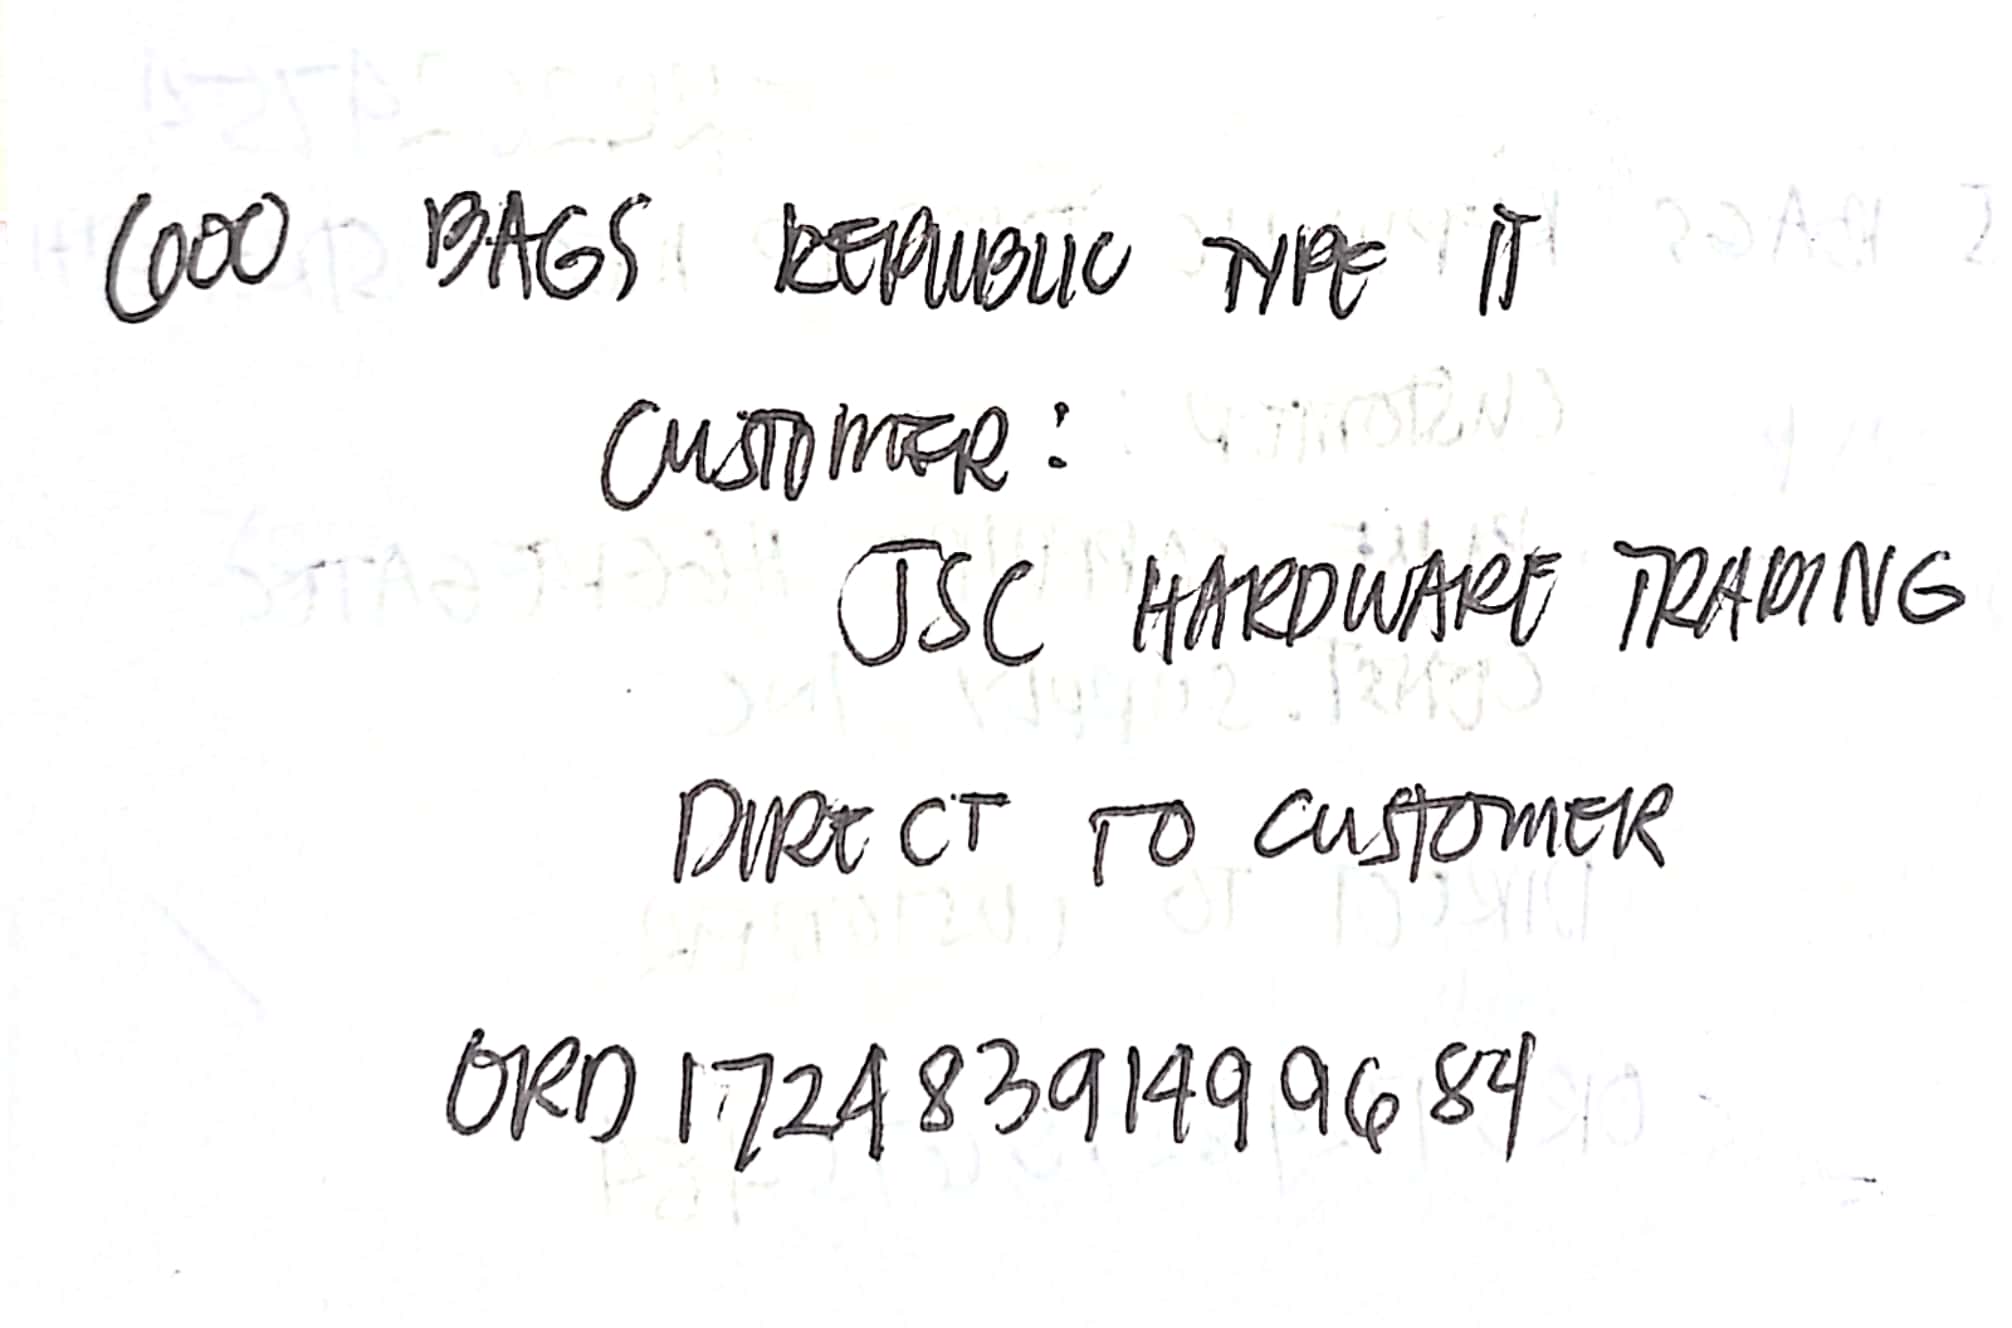 600 BAGS REPUBLIC TYPE 1T
CUSTOMER:
JSC HARDWARE TRADING
DIRECT TO CUSTOMER
ORD 1724839149996 84